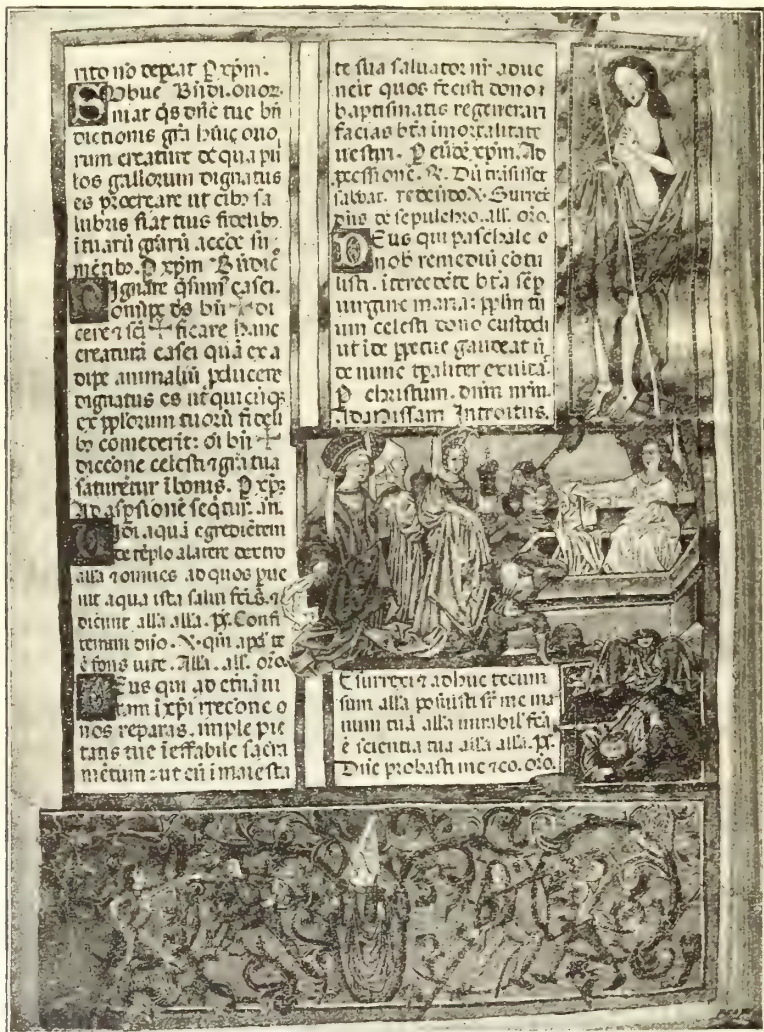 rito nō repeat P xp̄m.
Subue Bn̄di. ouor.
niat q̄s dn̄e tue bn̄
dictionis gr̄a huic ouo
rum creature de qua pu
los gallorum dignatus
es procreare ut cib₉ sa
lubris fiat tuis fidelib₉
mētib₉. P xp̄m Bn̄dic̄
Dignare q̄sum₉ casei.
om̄pe ds̄ bn̄ ✠ di
cere ⁊ sc̄i ✠ ficare hanc
creaturā casei quā ex a
dipe animaliū pducere
dignatus es ut qui cūq̄
ex pplorum tuorū fideli
b₉ comederit: oi bn̄ ✠
diccone celesti ⁊ gr̄a tua
saturētur ī bonis. P xp̄
Ad asp̄sionē seq̄tur. an̄.
Vidi aquā egrediētem
de tēplo a latere dextro
alla ⁊ omnes ad quos pue
nit aqua ista salui
dicent alla alla. ps̄. Confi
temini dn̄o. V. qui apd̄ te
ē fons uite. Alla. all. oro.
Deus qui ad etn̄ā ui
tam ī xp̄i rrecc̄one
nos reparas. imple pie
tatis tue īeffabile sacra
mētum: ut cū ī maiesta
te sua saluator nr̄ adue
nerit quos fecisti dono
baptismatis regenerari
facias bt̄a imortalitate
uestiri. P eūdē xp̄m. Ad
pcessionē. R. Dū trāsisset
sabbat. redeūdo. V. Surrex̄
dn̄s de sepulchro. all. oro.
Deus qui paschale
nob̄ remediū cōtu
listi. ītercedēte bt̄a sēp
uirgine maria: pplm̄ tu
um celesti dono custodi
ut īde ppetue gaudeat ū
de nunc tp̄aliter exulta.
P christum. dn̄m nr̄m.
Ad Missam Introitus.
Esurrexi ⁊ adhuc tecum
sum alla posuisti sr̄ me ma
num tuā alla mirabil̄ fc̄ā
ē scientia tua alla alla. ps̄.
Dn̄e probasti me ⁊ co. oro.